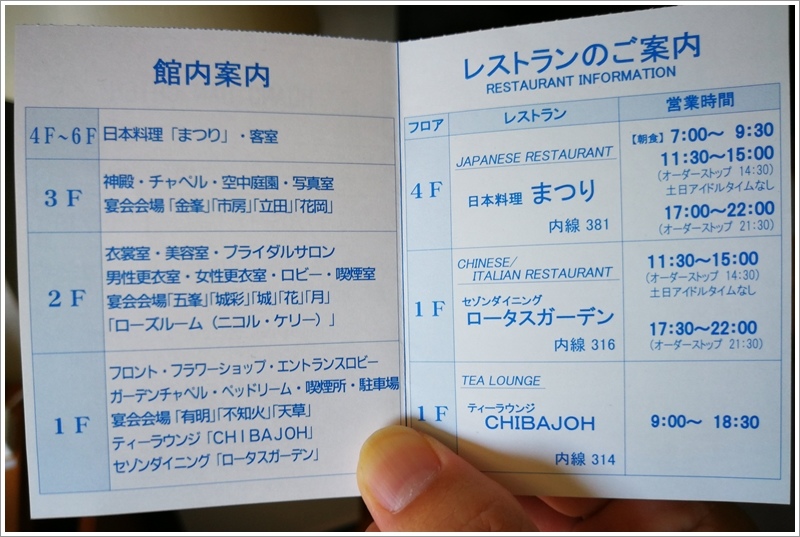 館内案内
4F~6F 日本料理「まつり」・客室
3F 神殿・チャペル・空中庭園・写真室
宴会会場「金峯」「市房」「立田」「花岡」
2F 衣裳室・美容室・ブライダルサロン
男性更衣室・女性更衣室・ロビー・喫煙室
宴会会場「五峯」「城彩」「城」「花」「月」
「ローズルーム（ニコル・ケリー）」
1F フロント・フラワーショップ・エントランスロビー
ガーデンチャペル・ベッドリーム・喫煙所・駐車場
宴会会場「有明」「不知火」「天草」
ティーラウンジ「CHIBAJOH」
セゾンダイニング「ロータスガーデン」
レストランのご案内
RESTAURANT INFORMATION
フロア レストラン 営業時間
4F
JAPANESE RESTAURANT
日本料理 まつり
内線 381
【朝食】7:00～ 9:30
11:30～15:00
（オーダーストップ 14:30）
土日アイドルタイムなし
17:00～22:00
（オーダーストップ 21:30）
1F
CHINESE/
ITALIAN RESTAURANT
セゾンダイニング
ロータスガーデン
内線 316
11:30～15:00
（オーダーストップ 14:30）
土日アイドルタイムなし
17:30～22:00
（オーダーストップ 21:30）
1F
TEA LOUNGE
ティーラウンジ
CHIBAJOH
内線 314
9:00～ 18:30